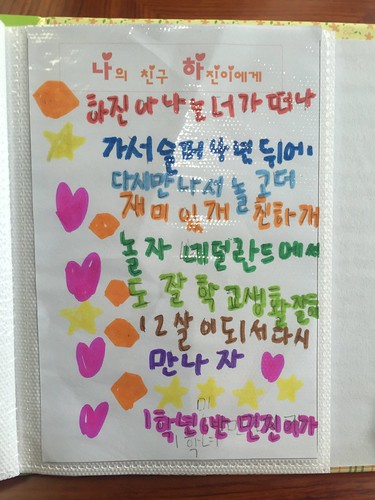 나의 친구 하진이에게
하진아 나는 너가 떠나
가서 슬퍼 몇 년 뒤에
다시만나서 놀고더
재미있개 친하개
놀자 네덜란드에서
도 잘 학교생활잘
12살이되서다시
만나자
1학년6반 민진이가